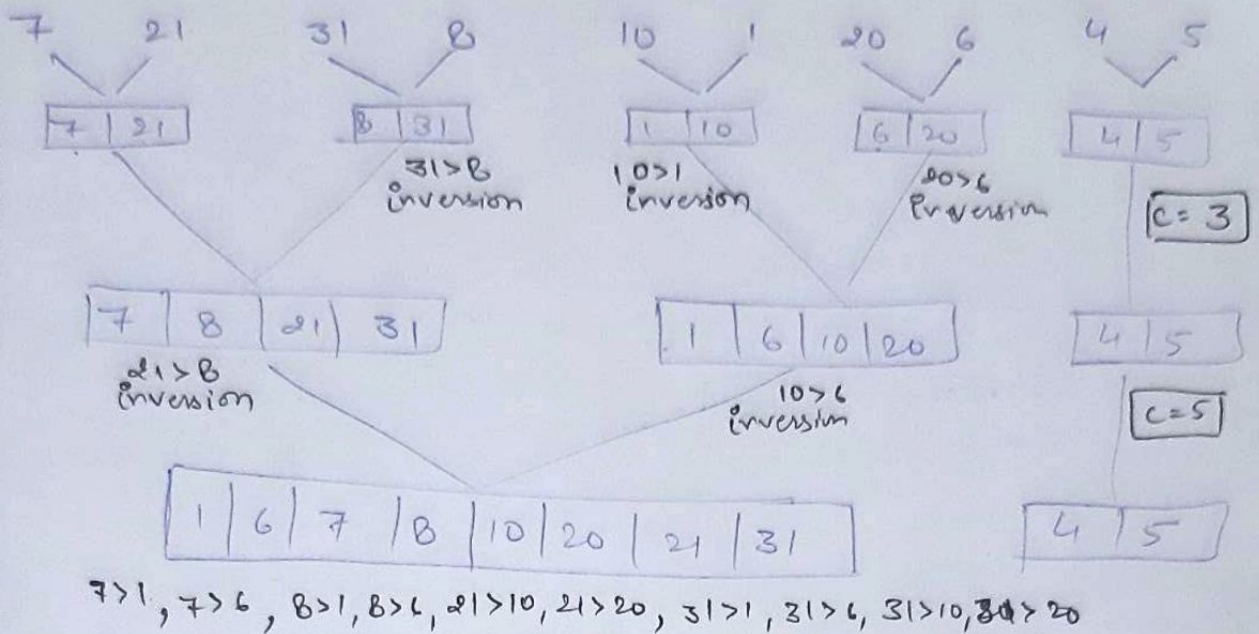 7 21 31 8 10 1 20 6 4 5
7 21 8 31 1 10 6 20 4 5
31>8 10>1 20>6
inversion inversion inversion c= 3
7 8 21 31 1 6 10 20 4 5
21>8 10>6
inversion inversion c=5
1 6 7 8 10 20 21 31 4 5
7>1, 7>6, 8>1, 8>6, 21>10, 21>20, 31>1, 31>6, 31>10, 31>20